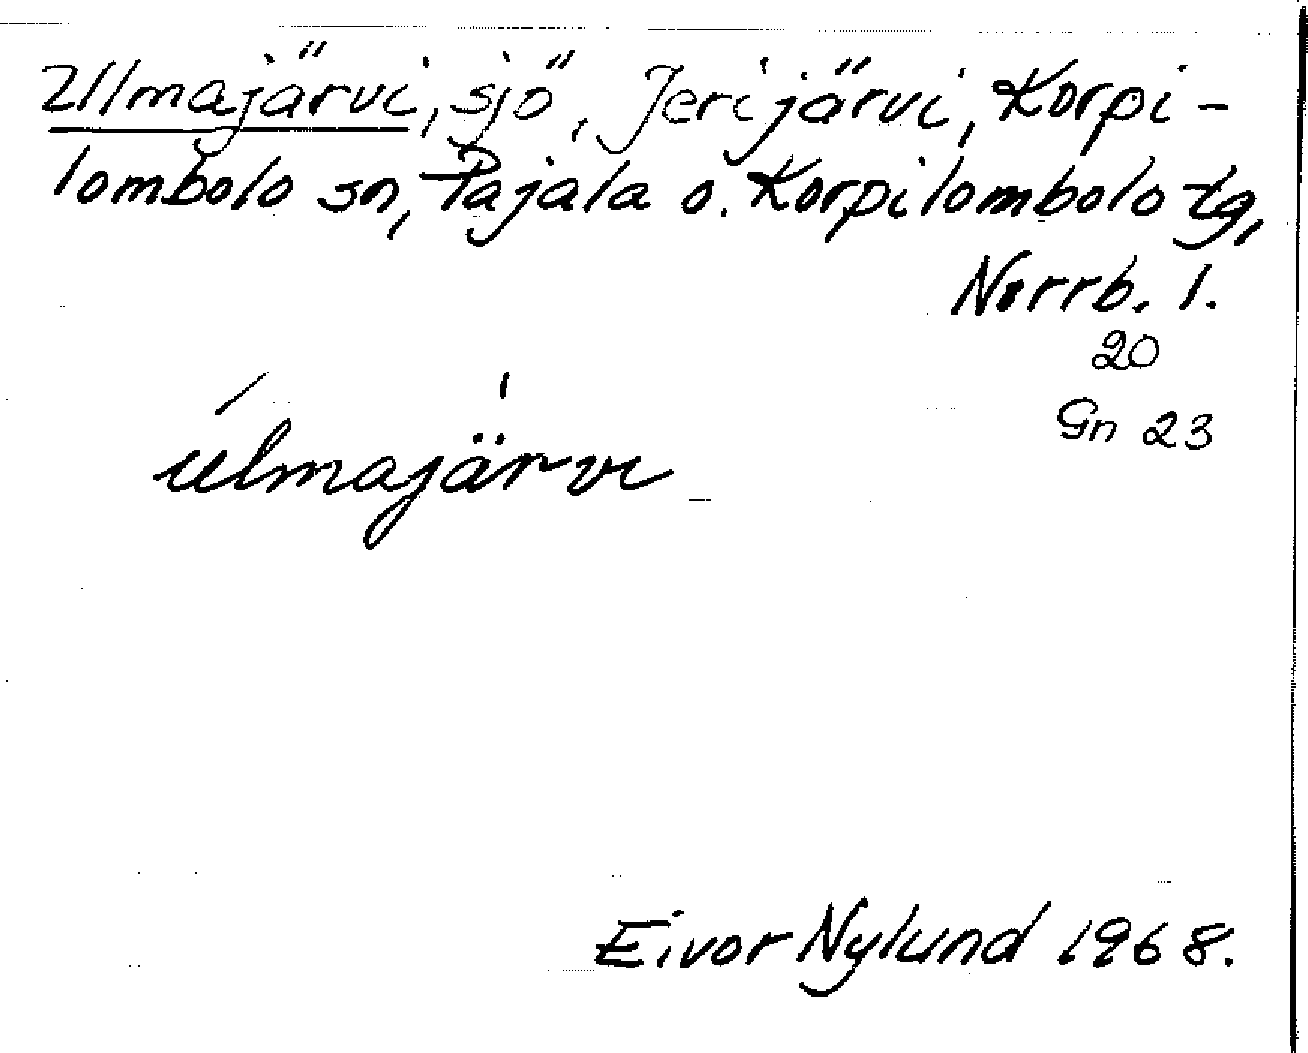 Ulmajärvi, sjö, Jerijärvi, Korpi-
lombolo sn, Pajala o. Korpilombolo tg,
Norrb. l.
20
Gn 23
úlmajärvi
Eivor Nylund 1968.